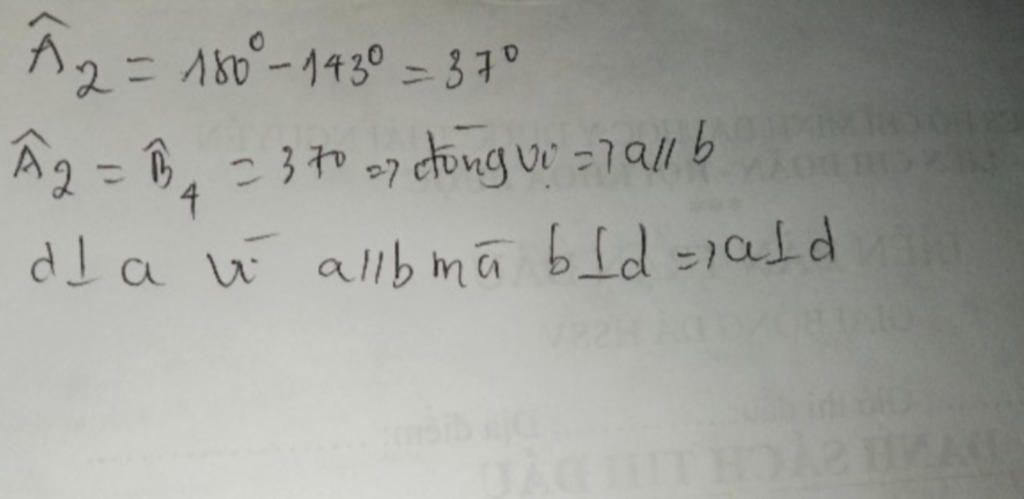 Â₂ = 180⁰ - 143⁰ = 37⁰
Â₂ = B̂₄ = 37⁰ => đồng vị => a//b
d⊥a vì a//b mà b⊥d => a⊥d